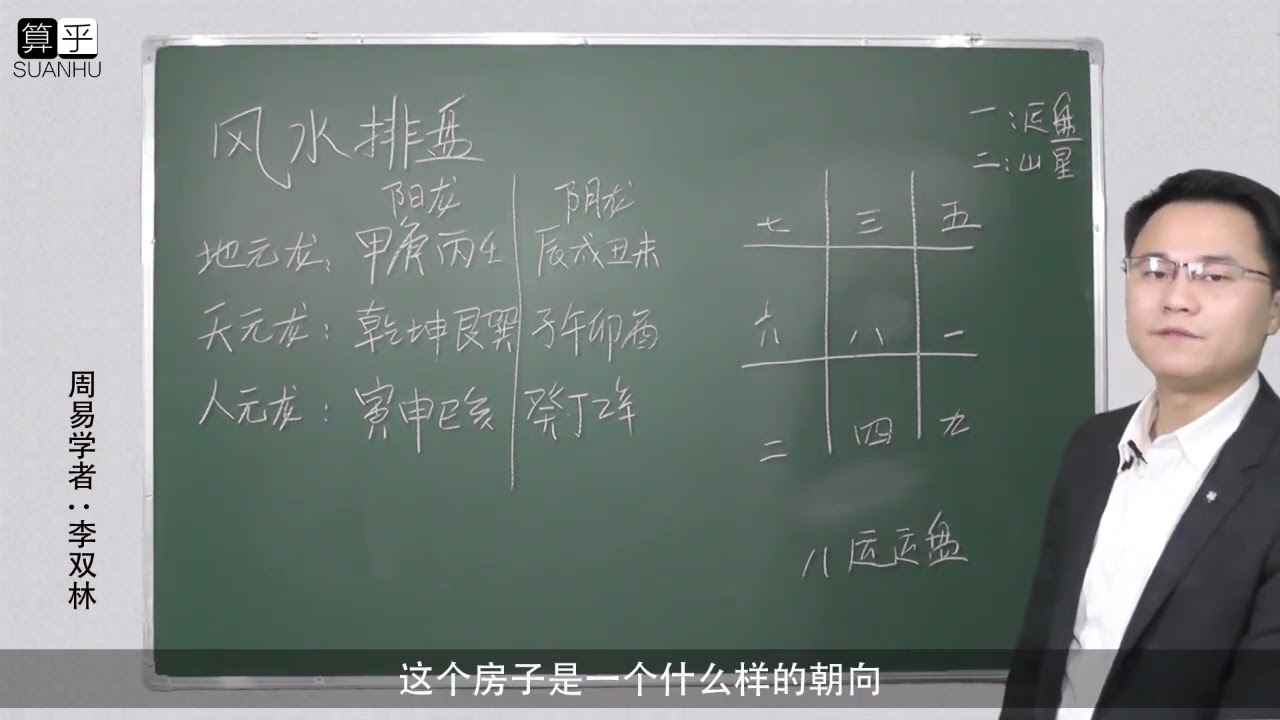 算乎
SUANHU
风水排盘
阳龙 阴龙
地元龙：甲庚丙壬 辰戌丑未
天元龙：乾坤艮巽 子午卯酉
人元龙：寅申巳亥 癸丁乙辛
一：运盘
二：山星
七 三 五
六 八 一
二 四 九
八运运盘
周易学者：李双林
这个房子是一个什么样的朝向